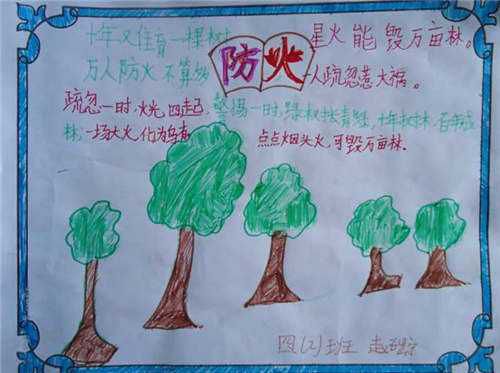 十年又住育一棵树 星火能毁万亩林。
防火
万人防火不算多 一人疏忽惹大祸。
疏忽一时,火光四起, 警惕一时,绿树披青 十年树木,百年成
林;一场大火,化为乌有 点点烟头火,可毁万亩林.
四(2)班